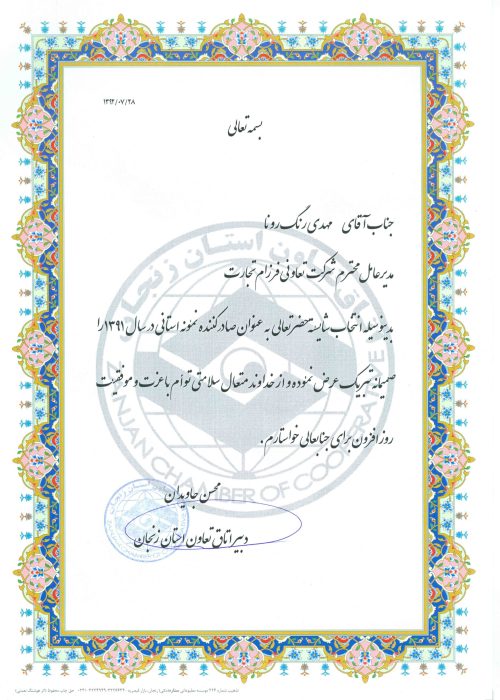 ۱۳۹۲/۰۷/۲۸
بسمه تعالی
جناب آقای مهدی رنگ رونا
مدیرعامل محترم شرکت تعاونی فرزام تجارت
بدینوسیله انتخاب شایسته حضرتعالی به عنوان صادرکننده نمونه استانی در سال ۱۳۹۱ را
صمیمانه تبریک عرض نموده و از خداوند متعال سلامتی توأم با عزت و موفقیت
روز افزون برای جنابعالی خواستارم .
محسن جاویدان
دبیر اتاق تعاون استان زنجان
اتاق تعاون استان زنجان
ZANJAN CHAMBER OF COOPERATIVE